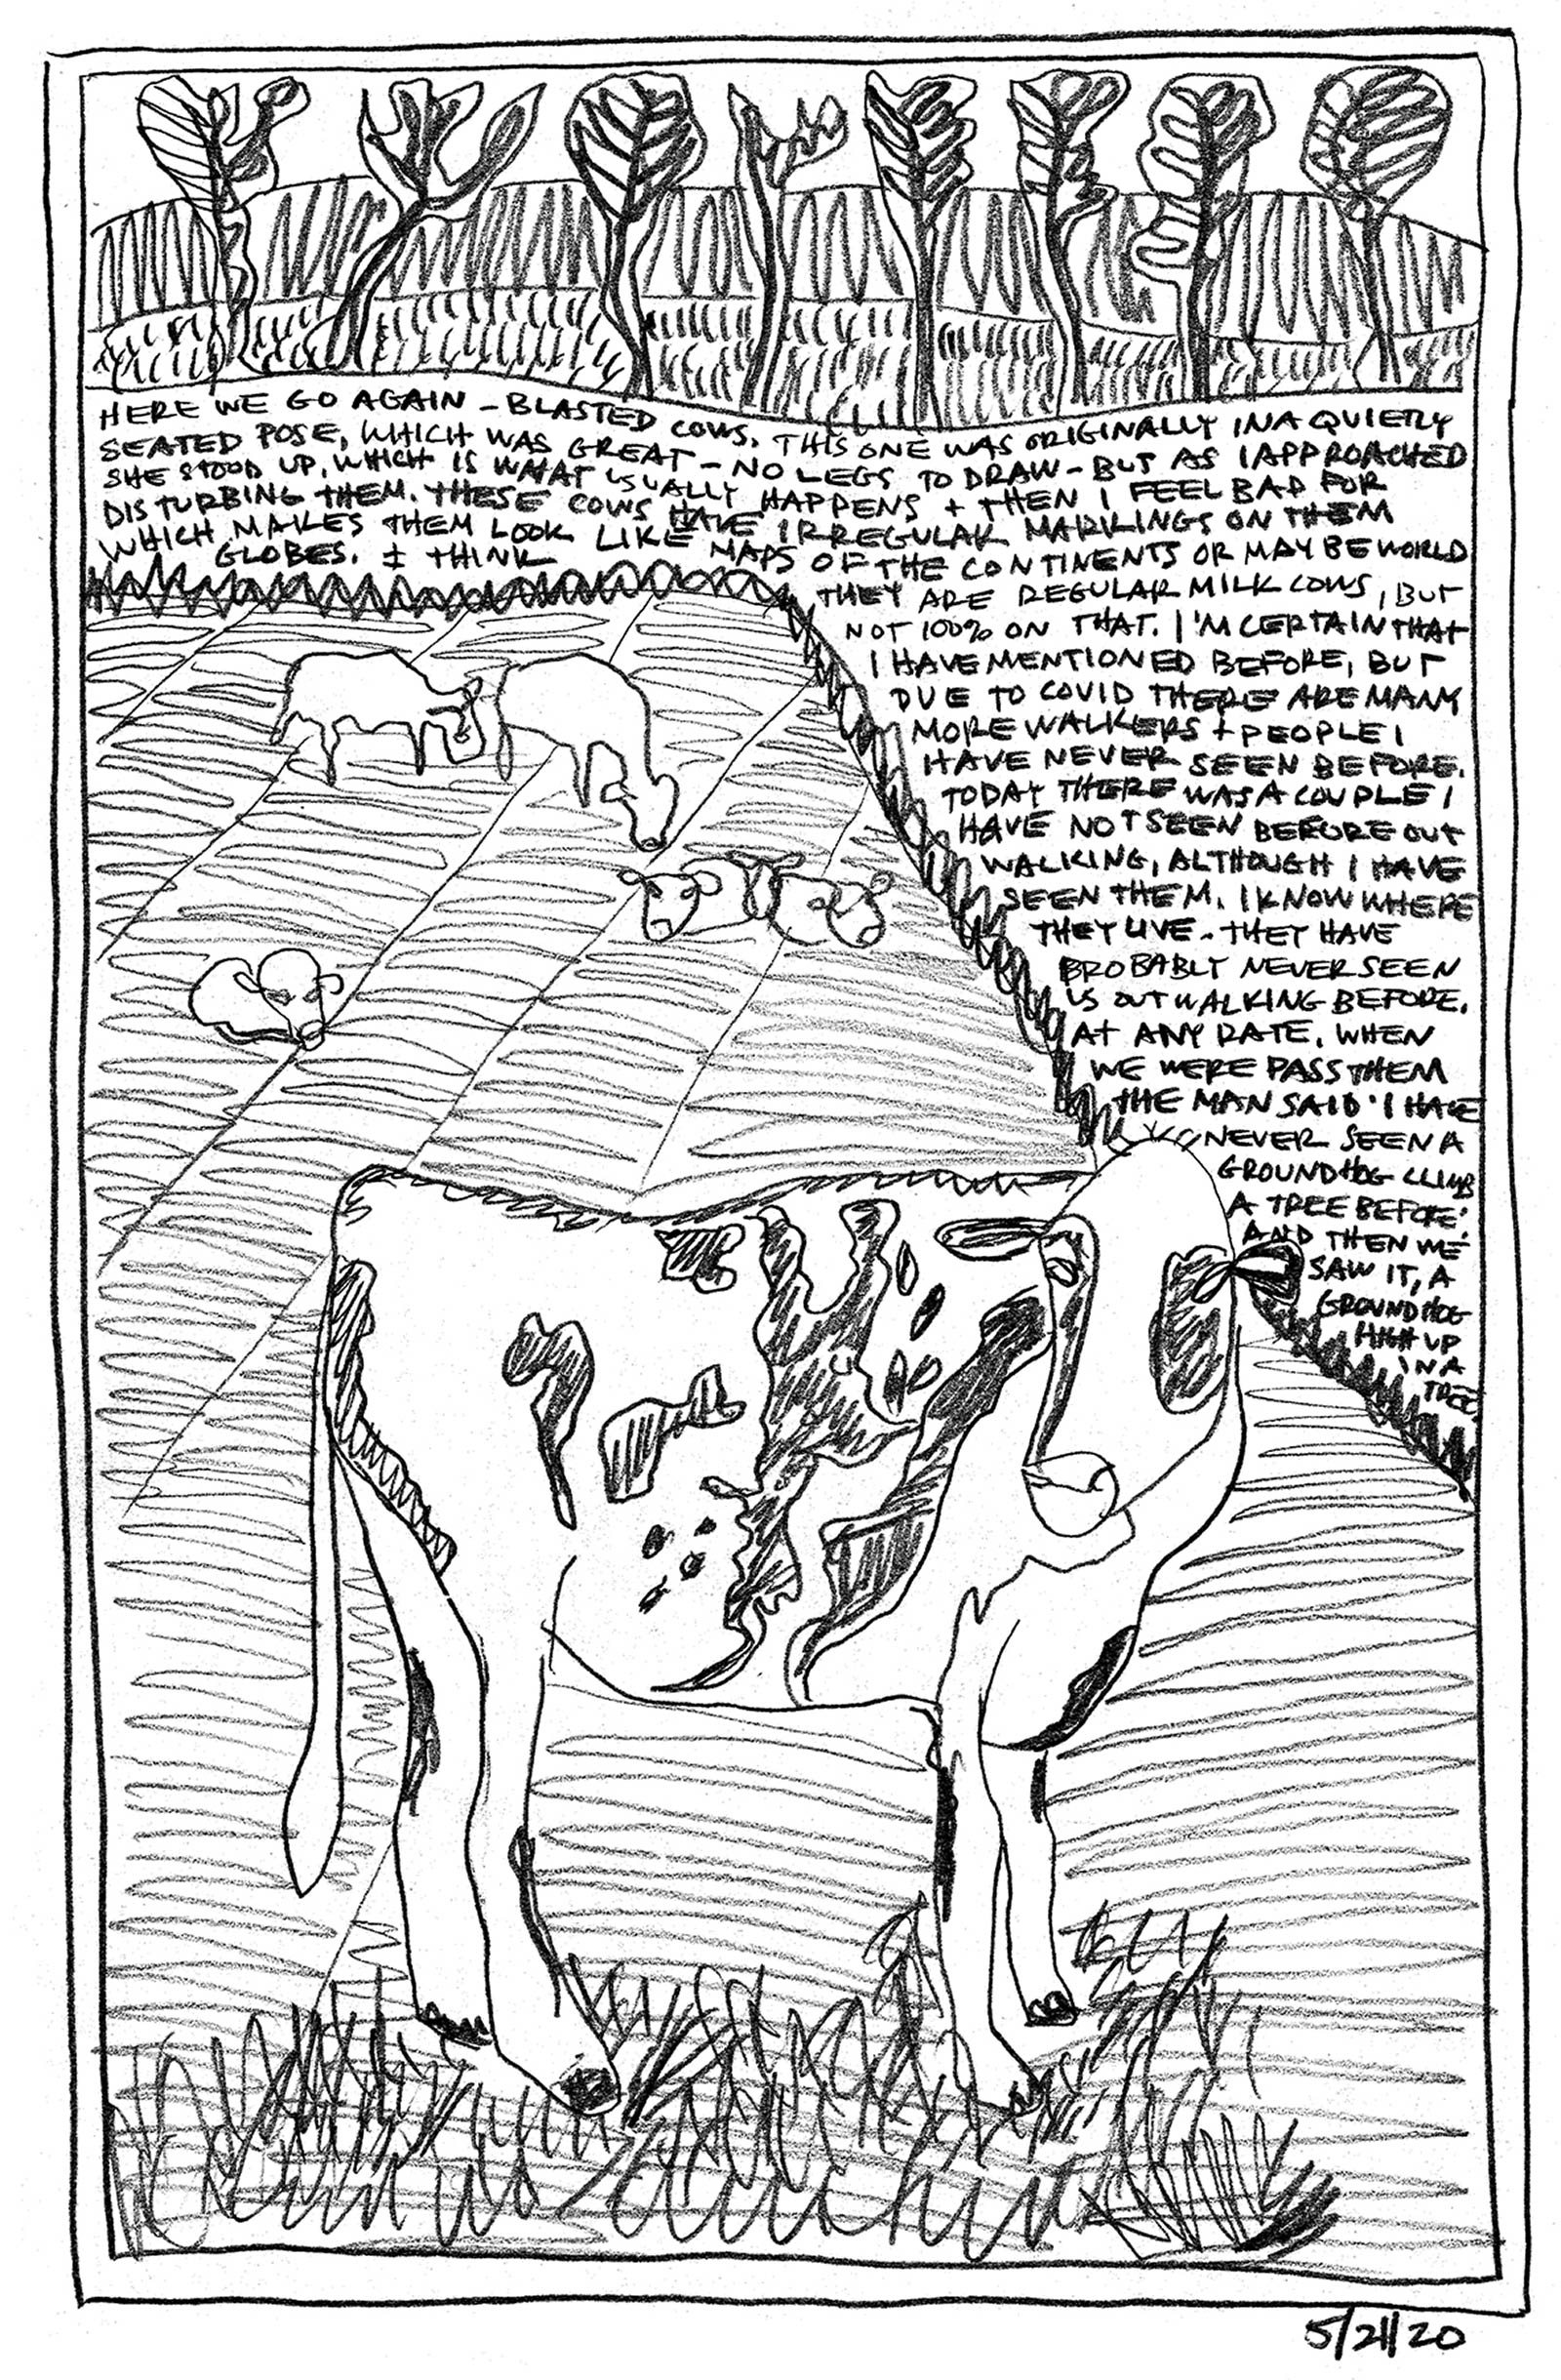 HERE WE GO AGAIN - BLASTED COWS. THIS ONE WAS ORIGINALLY IN A QUIETLY
SEATED POSE, WHICH WAS GREAT - NO LEGS TO DRAW - BUT AS I APPROACHED
SHE STOOD UP, WHICH IS WHAT USUALLY HAPPENS + THEN I FEEL BAD FOR
DISTURBING THEM. THESE COWS HAVE IRREGULAR MARKINGS ON THEM
WHICH MAKES THEM LOOK LIKE MAPS OF THE CONTINENTS OR MAYBE WORLD
GLOBES. I THINK
THEY ARE REGULAR MILK COWS, BUT
NOT 100% ON THAT. I'M CERTAIN THAT
I HAVE MENTIONED BEFORE, BUT
DUE TO COVID THERE ARE MANY
MORE WALKERS + PEOPLE I
HAVE NEVER SEEN BEFORE.
TODAY THERE WAS A COUPLE I
HAVE NOT SEEN BEFORE OUT
WALKING, ALTHOUGH I HAVE
SEEN THEM. I KNOW WHERE
THEY LIVE - THEY HAVE
PROBABLY NEVER SEEN
US OUT WALKING BEFORE.
AT ANY RATE, WHEN
WE WERE PASS THEM
THE MAN SAID 'I HAVE
NEVER SEEN A
GROUNDHOG CLIMB
A TREE BEFORE'.
AND THEN WE
SAW IT, A
GROUNDHOG
HIGH UP
IN A
TREE.
5/21/20